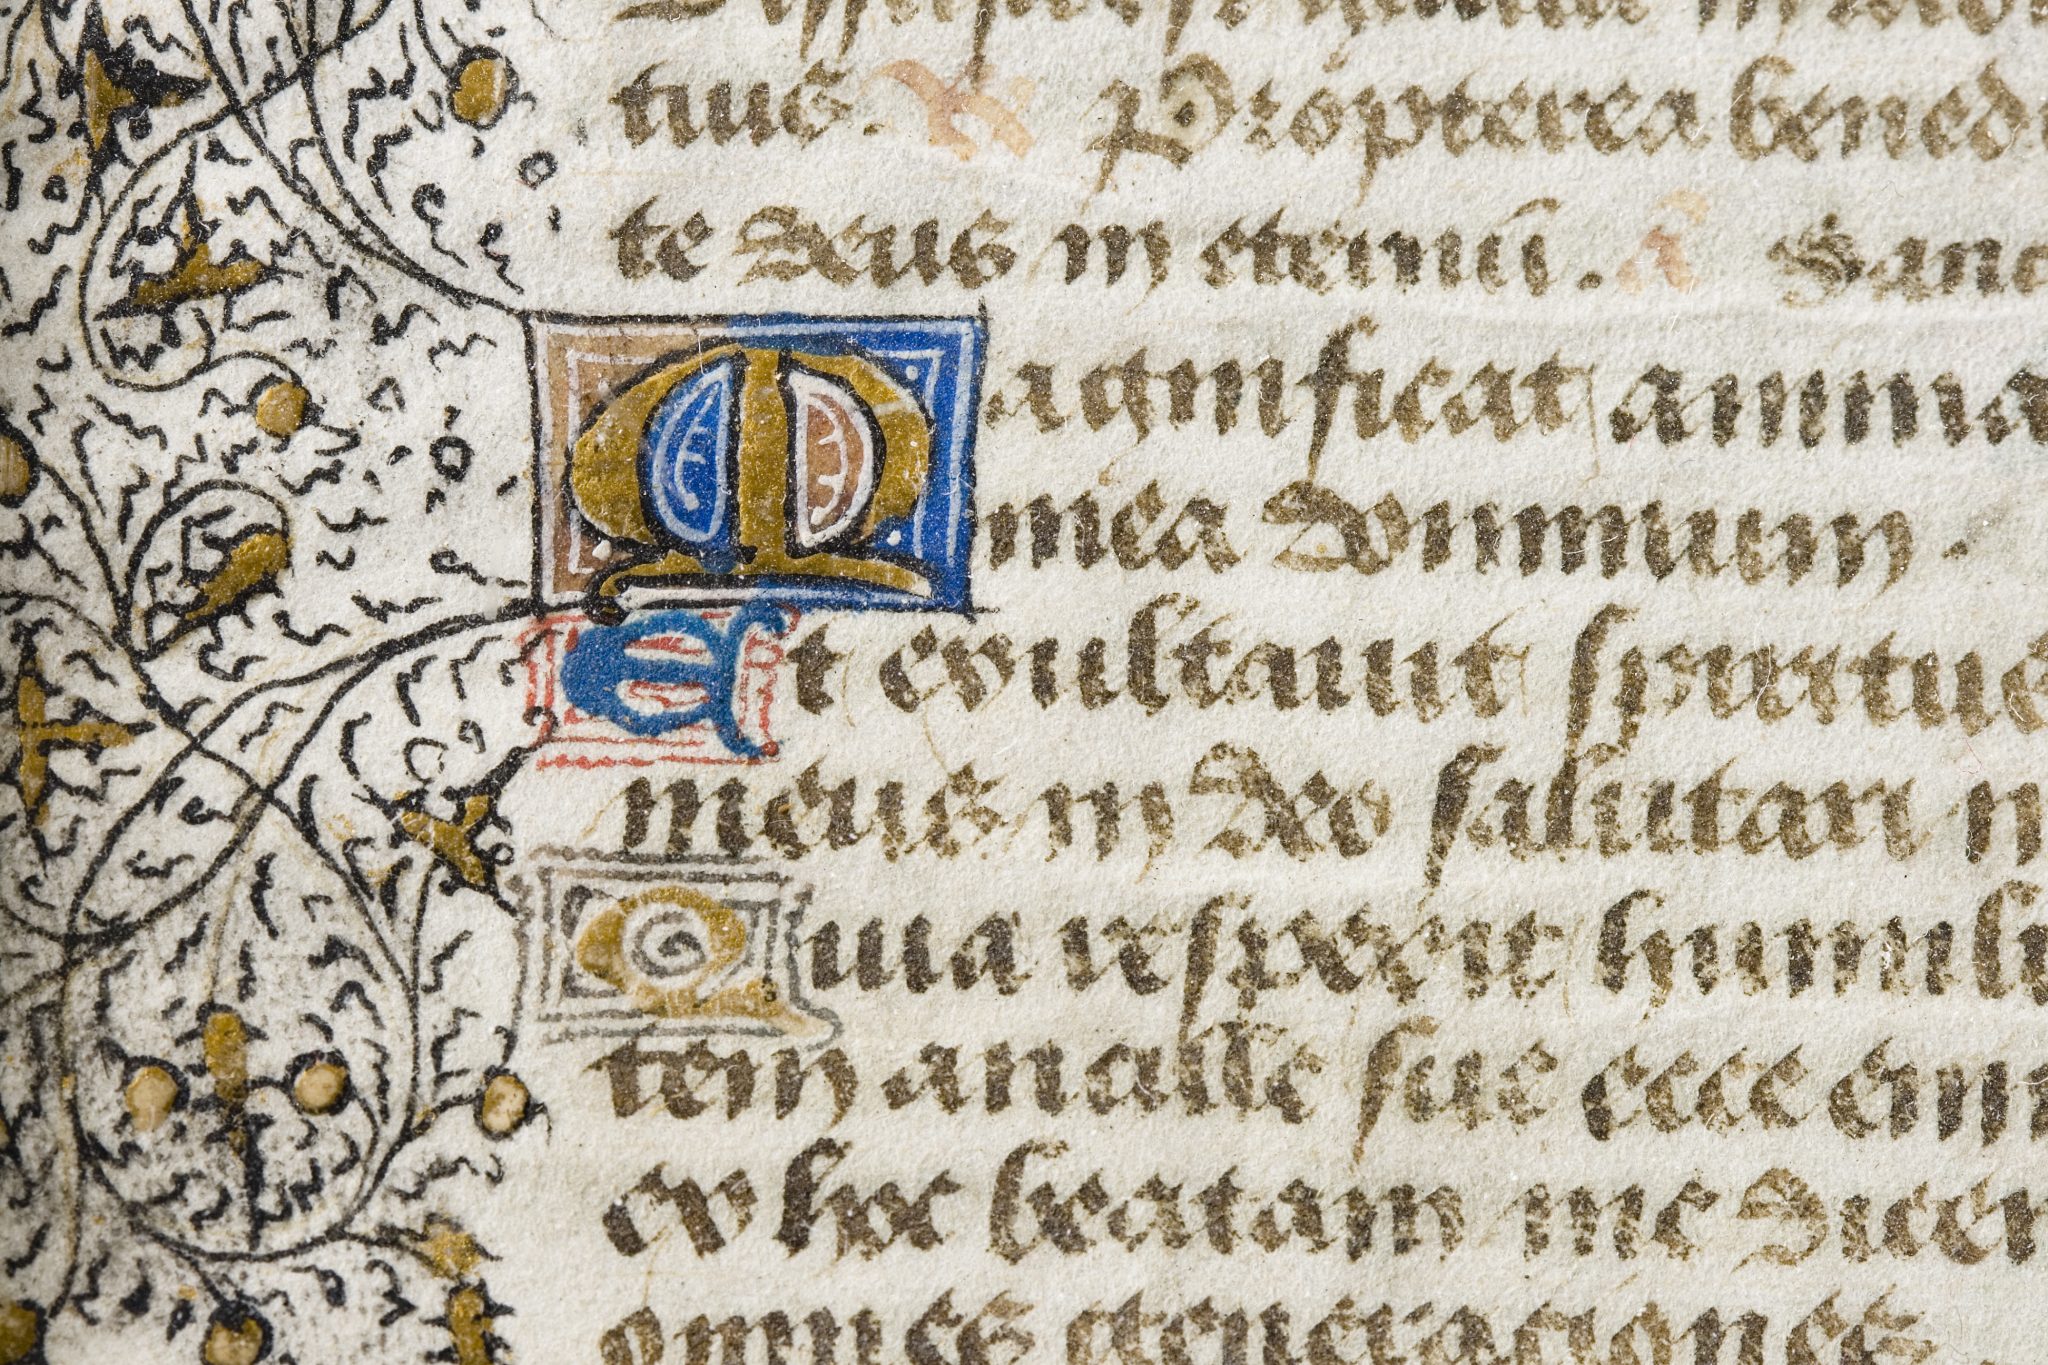 tuis. V Propterea bened
te deus in eternū. a Sanc
Magnificat anima
mea dominum.
Et exultauit spiritus
meus in deo salutari m
Quia respexit humili
tem ancille sue ecce enim
ex hoc beatam me dicen
omnes generaciones